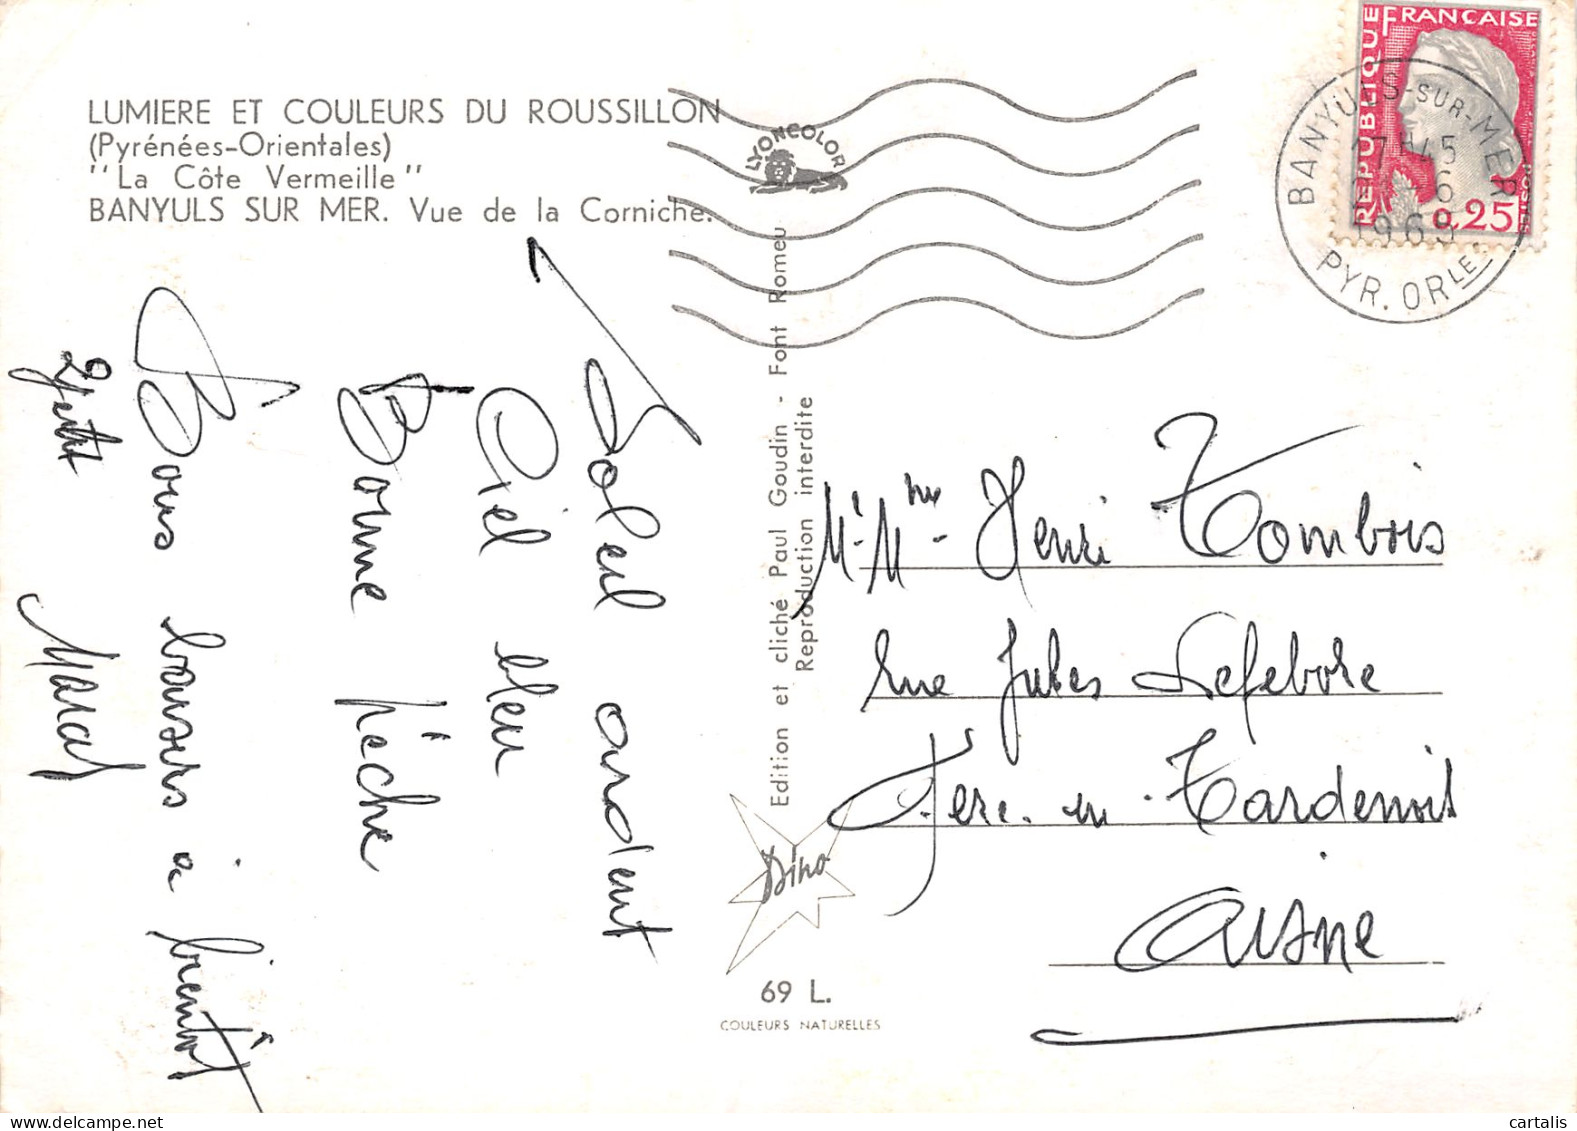 LUMIERE ET COULEURS DU ROUSSILLON
(Pyrénées-Orientales)
"La Côte Vermeille"
BANYULS SUR MER. Vue de la Corniche.
LYONCOLOR
REPUBLIQUE FRANÇAISE
0,25
POSTES
BANYULS-SUR-MER
17H45
6
1963
PYR. ORLES
Soleil ardent
Ciel bleu
Bonne pêche
Bons baisers à bientôt
Marcel
Edition et cliché Paul Goudin - Font Romeu
Reproduction interdite
Dino
69 L.
COULEURS NATURELLES
Mr. Mme. Henri Tombois
rue Jules Lefebvre
Fère. en. Tardenois
Aisne
cartalis